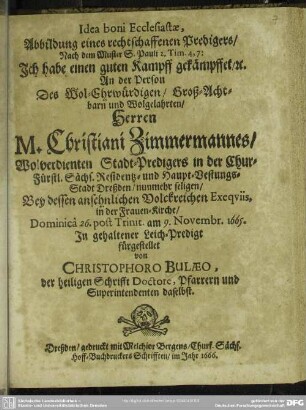 Idea boni Ecclesiastæ,
Abbildung eines rechtschaffenen Predigers/
Nach dem Muster S. Pauli 2. Tim. 4. 7:
Ich habe einen guten Kampff gekämpffet/ꝛc.
An der Person
Des Wol-Ehrwürdigen/ Groß-Acht-
barn und Wolgelahrten/
Herren
M. Christiani Zimmermannes/
Wolverdienten Stadt-Predigers in der Chur-
Fürstl. Sächs. Residentz- und Haupt-Vestungs-
Stadt Dreßden/ nunmehr seligen/
Bey dessen ansehnlichen Volckreichen Exeqviis,
in der Frauen-Kirche/
Dominicâ 26. post Trinit. am 9. Novembr. 1665.
In gehaltener Leich-Predigt
fürgestellet
von
CHRISTOPHORO BULÆO,
der heiligen Schrifft Doctore, Pfarrern und
Superintendenten daselbst.
Dreßden/ gedruckt mit Melchior Bergens/ Churf. Sächs.
Hoff-Buchdruckers Schrifften/ im Jahr 1666.